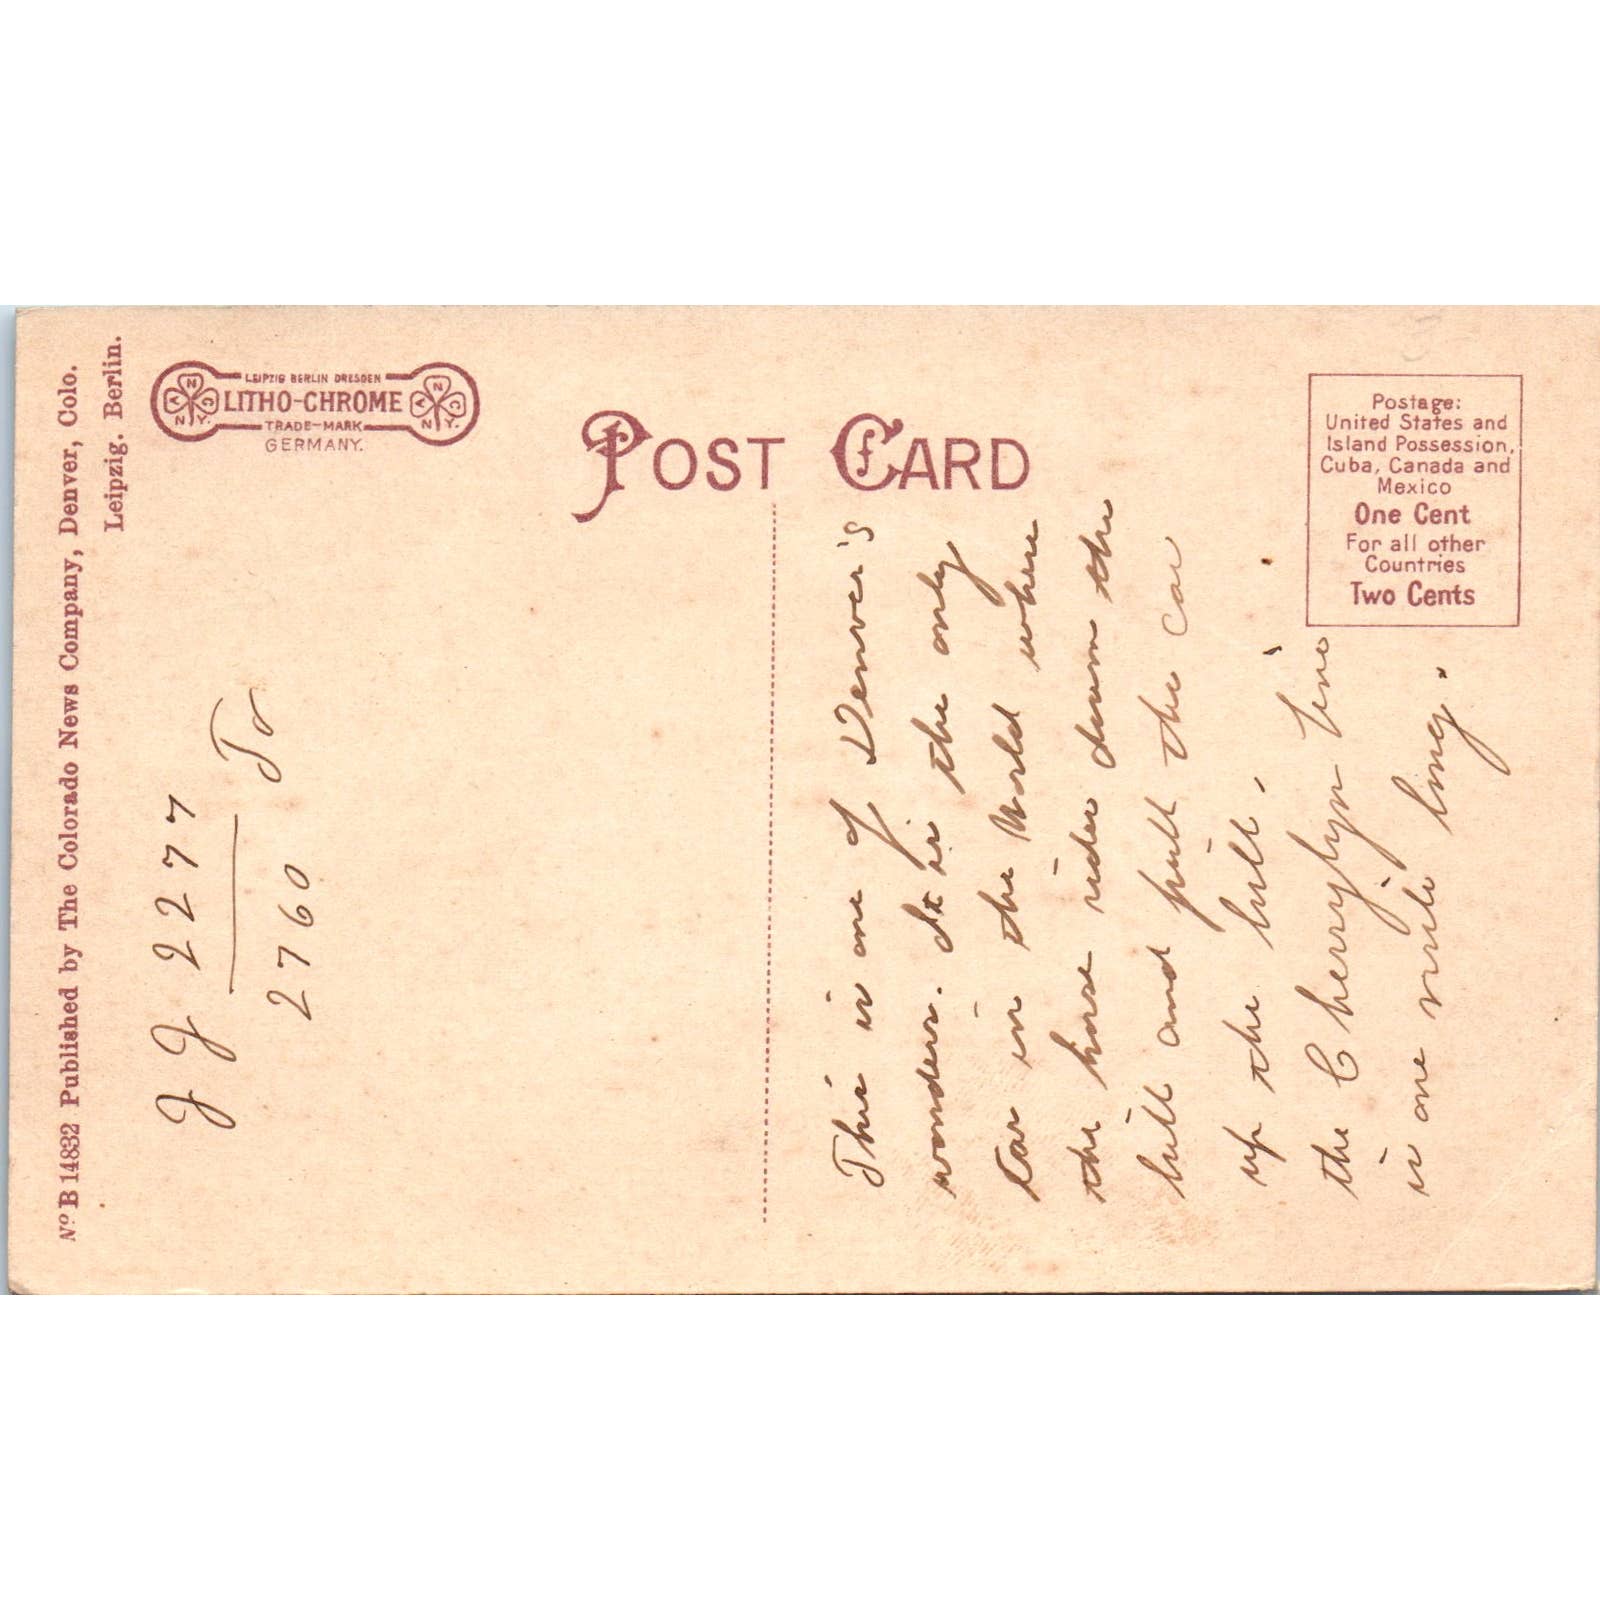 Nº B 14832 Published by The Colorado News Company, Denver, Colo.
Leipzig. Berlin.
LEIPZIG BERLIN DRESDEN
LITHO-CHROME
TRADE-MARK
GERMANY.
POST CARD
Postage:
United States and
Island Possession,
Cuba, Canada and
Mexico
One Cent
For all other
Countries
Two Cents
2277
2760
This is one of Denver's
wonders. It is the only
Car in the World where
the horse rides down the
hill and pull the car
up the hill.
the Cherrylyn line
is one mile long.